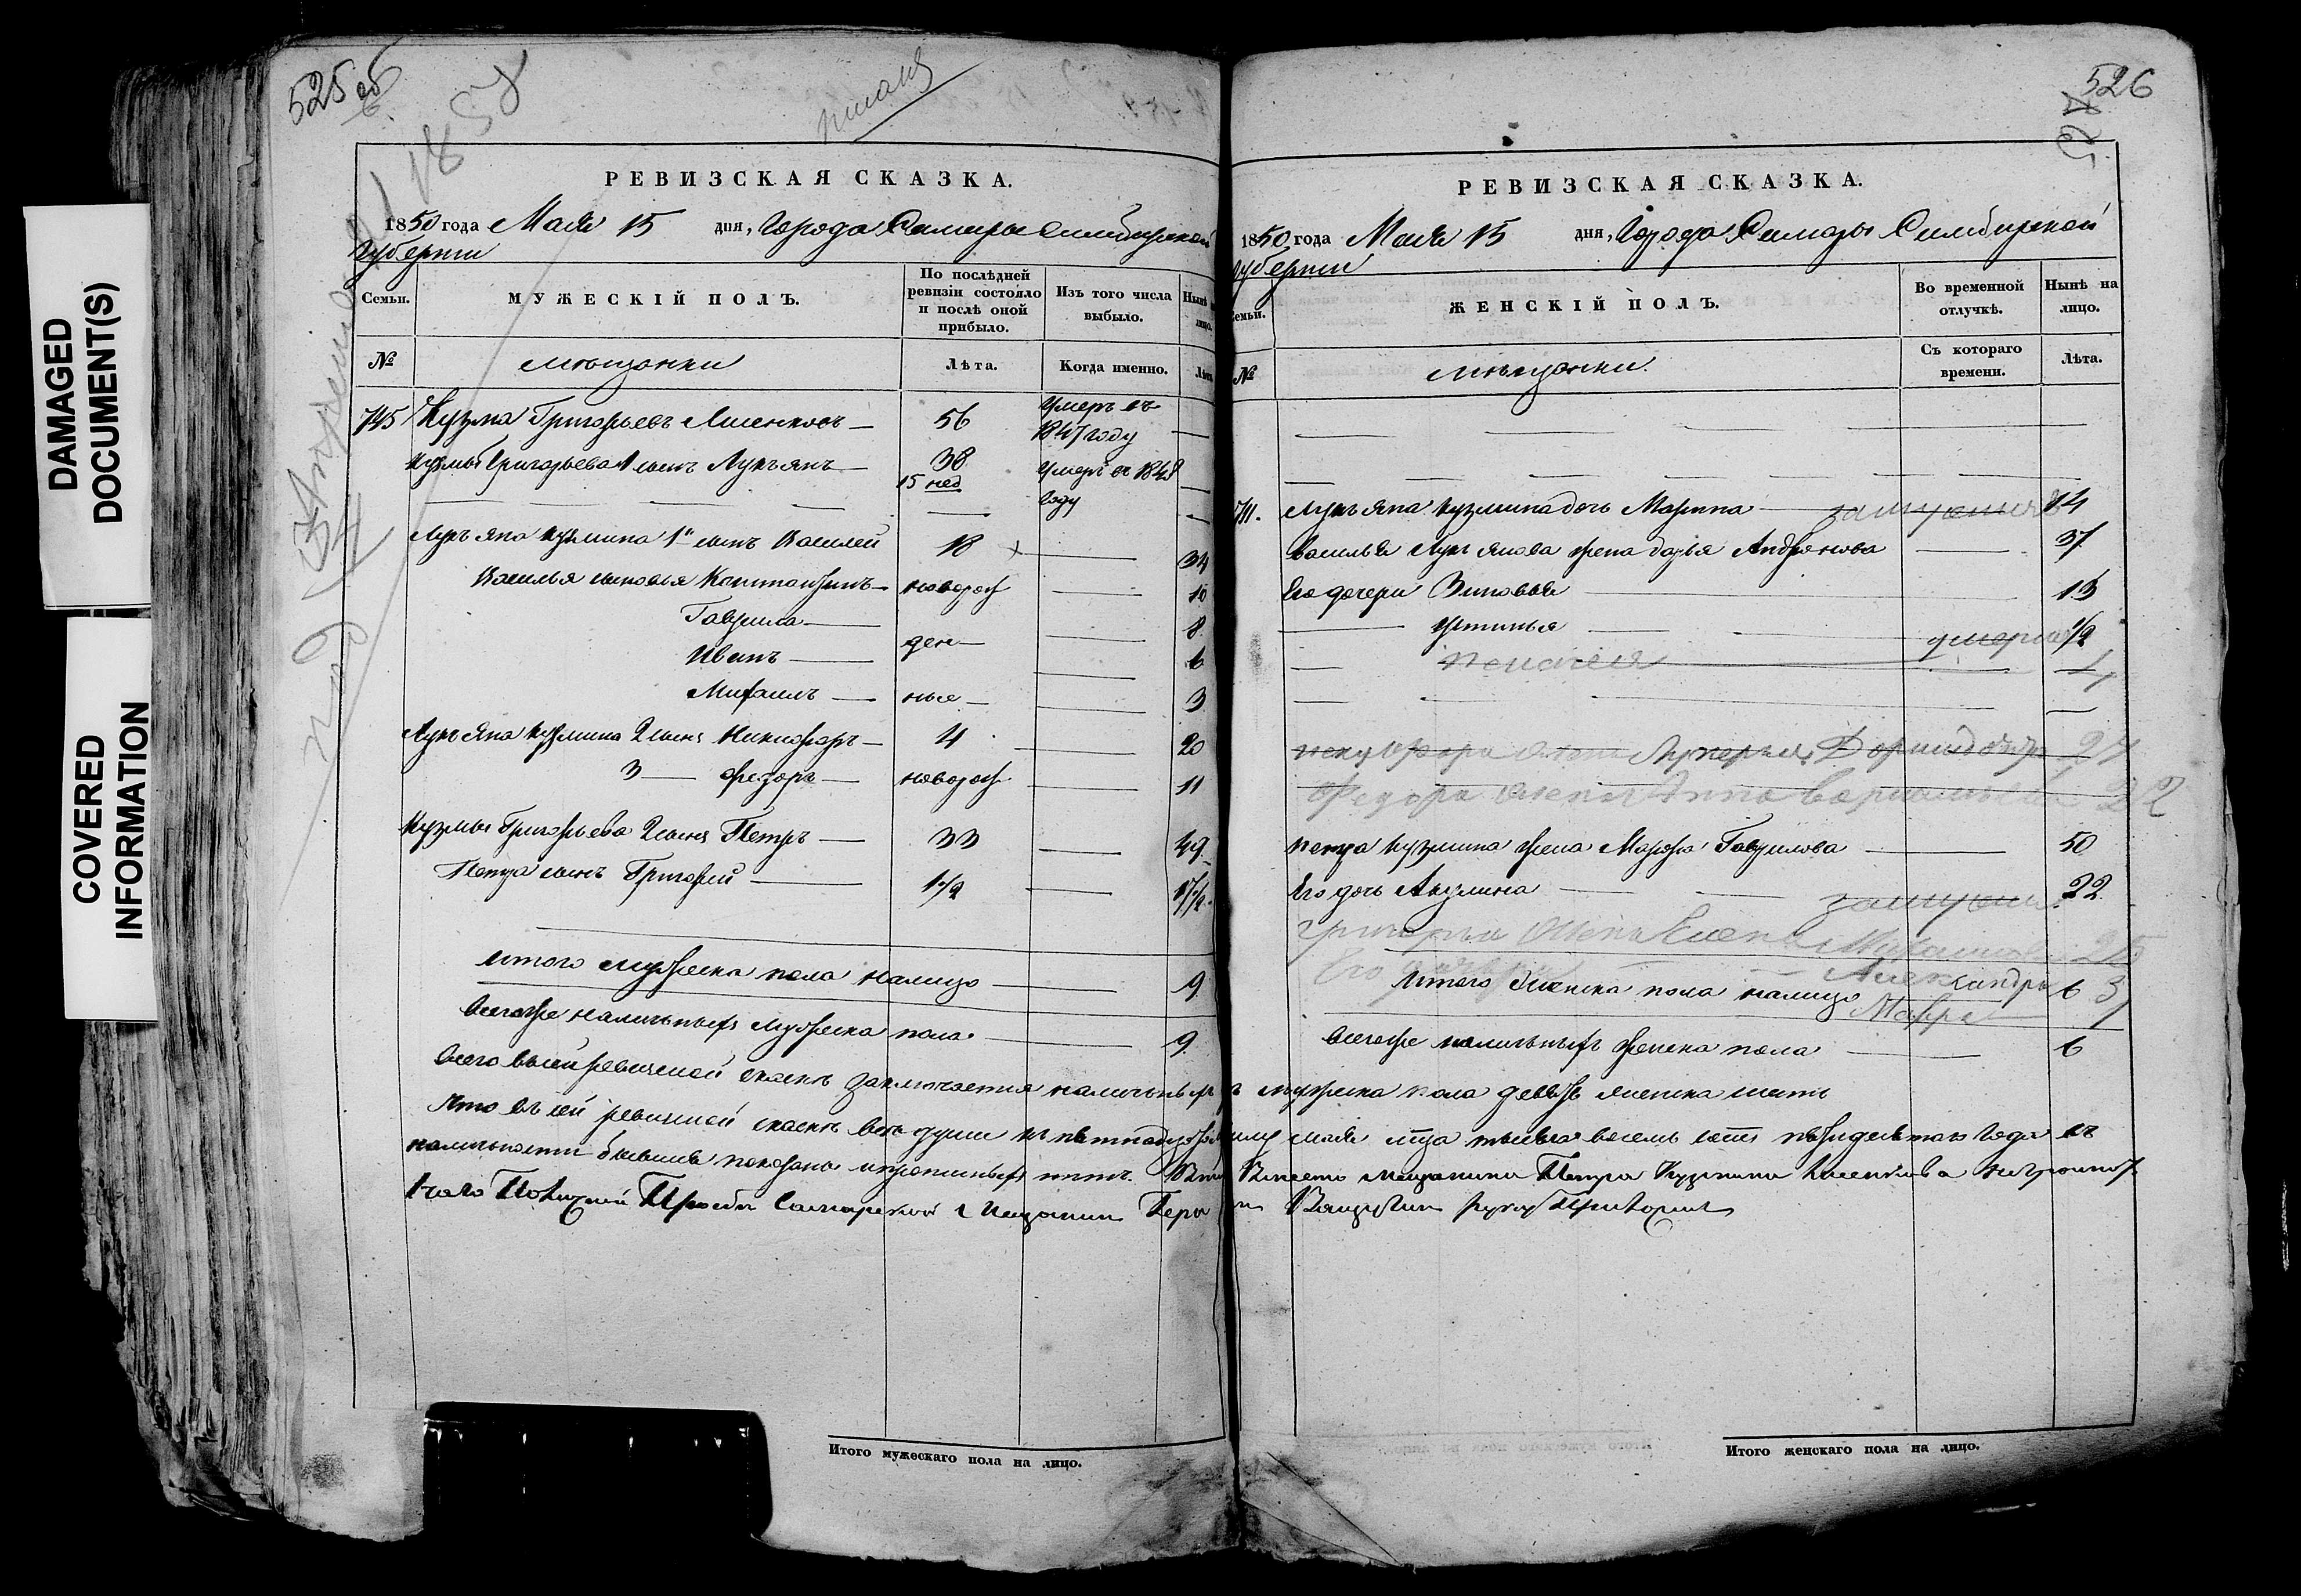 DAMAGED
DOCUMENT(S)
COVERED
INFORMATION
525 об
РЕВИЗСКАЯ СКАЗКА.
1850 года Мая 15 дня, Города Самары Симбирской
Губернии
Семьи.
МУЖЕСКІЙ ПОЛЪ.
По послѣдней
ревизіи состояло
и послѣ оной
прибыло.
Изъ того числа
выбыло.
Нынѣ
лицо.
№
мѣщанки
Лѣта.
Когда именно.
Лѣта
745 Кузма Григорьевъ 56 умеръ въ
1847 году
Кузмы Григорьева 1 сынъ Лукьянъ 38 умеръ въ 1848
15 нед году
Лукьяна Кузмина 1й сынъ Василей 18 34
Василья сыновья Константинъ новорож 10
Гаврила 8
Иванъ ден 6
Михаилъ ные 3
Лукьяна Кузмина 2 сынъ Никифоръ 4 20
3 Федоръ новорож 11
Кузмы Григорьева 2 сынъ Петръ 33 49
Петра сынъ Григорей 1 1/2 17 1/2
итого мужеска пола налицо 9
Всего же наличныхъ мужеска пола 9
Итого мужескаго пола на лицо.
526
РЕВИЗСКАЯ СКАЗКА.
1850 года Мая 15 дня, Города Самары Симбирской
Губернии
Семьи.
ЖЕНСКІЙ ПОЛЪ.
Во временной
отлучкѣ.
Нынѣ на
лицо.
№
мѣщанки.
Съ котораго
времени.
Лѣта.
Лукьяна Кузмина дочь Марина замужемъ 14
Василья Лукьянова жена Дарья Андреянова 37
Его дочери Зиновья 13
Устинья умерла 1/2
Пелагея
Никифора жена Лукерья
Федора жена Анна 22
Петра Кузмина жена Марфа Гаврилова 50
Его дочь Акулина замужем 22
Григорья жена Елена 25
Александра
Мавра
Итого женска пола налицо 6
Всего же наличныхъ женска пола 6
Всего въ сей ревизской сказкѣ заключается наличныхъ мужеска пола девять женска шесть
Что въ сей ревизской сказкѣ все души къ пятнадцатому мая мца тысяча восемь сотъ пятидесятаго года въ
наличности бывшие показаны и прописныхъ нетъ. Вместо мещанина Петра Кузмина неграмот
наго По личной Просьбе Самарской Мещанин руку приложил
Итого женскаго пола на лицо.